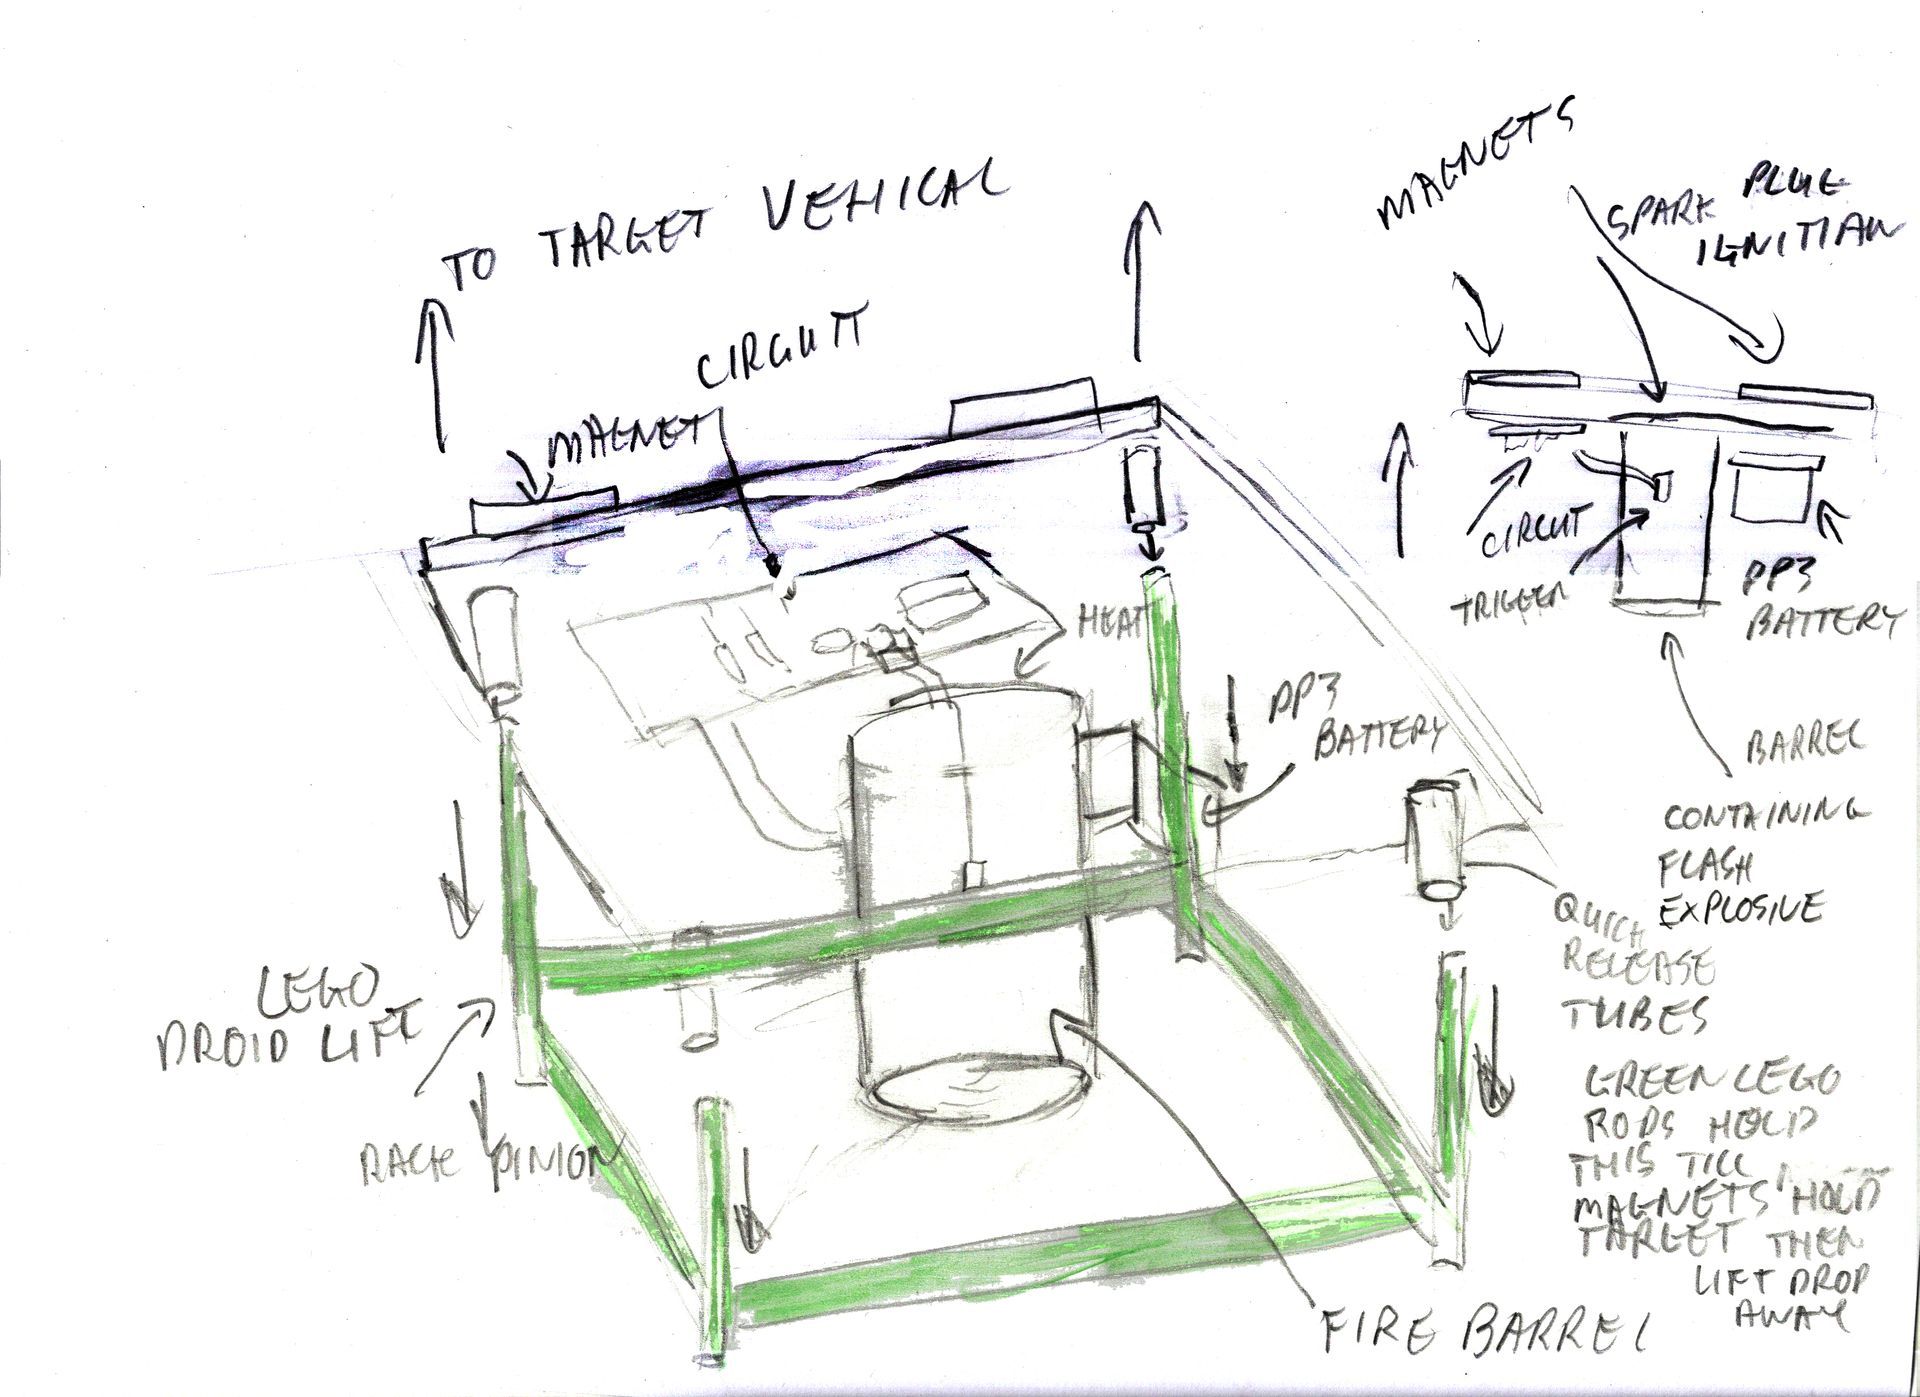 TO TARGET VEHICAL
CIRCUTT
MAGNET
HEAT
PP3
BATTERY
LEGO
DROID LIFT
RACK PINION
FIRE BARREL
MAGNETS
SPARK PLUG
IGNITIAN
CIRCUT
TRIGGER
PP3
BATTERY
BARREL
CONTAINING
FLASH
EXPLOSIVE
QUICK
RELEASE
TUBES
GREEN LEGO
RODS HOLD
THIS TILL
MAGNETS HOLD
TARGET THEN
LIFT DROP
AWAY